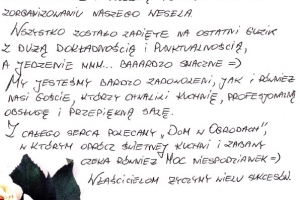 ZORGANIZOWANIU NASZEGO WESELA.
WSZYSTKO ZOSTAŁO ZAPIĘTE NA OSTATNI GUZIK
Z DUŻĄ DOKŁADNOŚCIĄ I PUNKTUALNOŚCIĄ,
A JEDZENIE MMM... BAAARDZO SMACZNE =)
MY JESTEŚMY BARDZO ZADOWOLENI, JAK I RÓWNIEŻ
NASI GOŚCIE, KTÓRZY CHWALILI KUCHNIĘ, PROFESJONALNĄ
OBSŁUGĘ I PRZEPIĘKNĄ SALĘ.
Z CAŁEGO SERCA POLECAMY „DOM W OGRODACH",
W KTÓRYM OPRÓCZ ŚWIETNEJ KUCHNI I ZABAWY
CZEKA RÓWNIEŻ MOC NIESPODZIANEK =)
WŁAŚCICIELOM ŻYCZYMY WIELU SUKCESÓW.